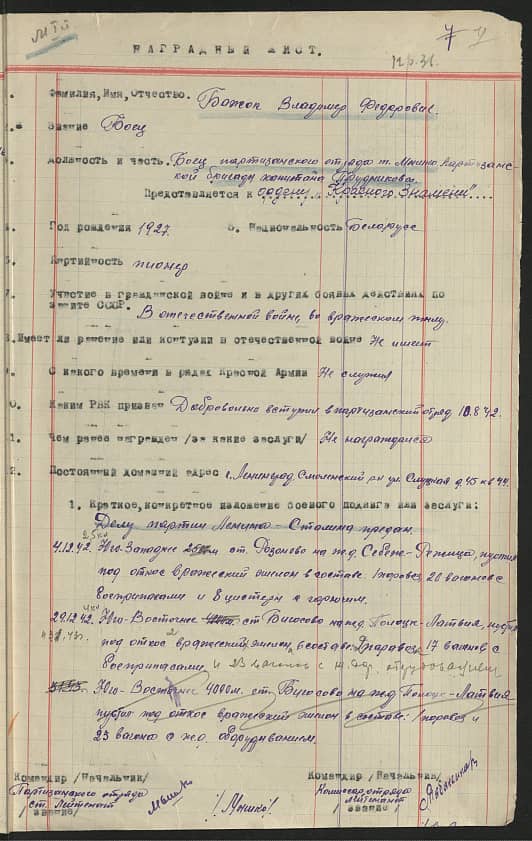 7
НАГРАДНЫЙ ЛИСТ.
Фамилия, Имя, Отчество. Божок Владимир Федорович.
Звание Боец
Должность и часть. Боец партизанского отряда т. Мышко, партизанс-
кой бригады капитана Прудникова.
Представляется к ордену "Красного Знамени"
Год рождения 1927. 5. Национальность Белорусс
Партийность пионер
7. Участие в гражданской войне и в других боевых действиях по
защите СССР.
В отечественной войне, во вражеском тылу.
Имеет ли ранение или контузии в отечественной войне Не имеет
С какого времени в рядах Красной Армии Не служил
0. Каким РВК призван Добровольно вступил в партизанский отряд 10.8.42.
1. Чем ранее награжден /за какие заслуги/ Не награждался
2. Постоянный домашний адрес г. Ленинград, Смоленский р-н ул. д. 45 кв 44.
1. Краткое, конкретное изложение боевого подвига или заслуги:
Делу партии Ленина-Сталина предан.
4.12.42. Юго-Западнее ст. на ж.д. , пустил
под откос вражеский эшелон в составе: 1 паровоз 20 вагонов с
боеприпасами и 8 цистерн с горючим.
29.12.42. Юго-Восточнее ст Бигосово на ж.д. Полоцк-Латвия, пустил
под откос 2 вражеских эшелона в составе: 2 паровоза 17 вагонов с
боеприпасами и 23 вагона с ж.д. оборудованием
Юго-Восточнее 4000м. ст. Бигосово на ж.д Полоцк-Латвия
пустил под откос вражеский эшелон в составе: 1 паровоз и
23 вагона с ж.д. оборудованием.
Командир /Начальник/ Командир /Начальник/
Партизанского отряда Комиссар отряда
ст. Лейтенант /Мышко/ Лейтенант
/звание/ /звание/